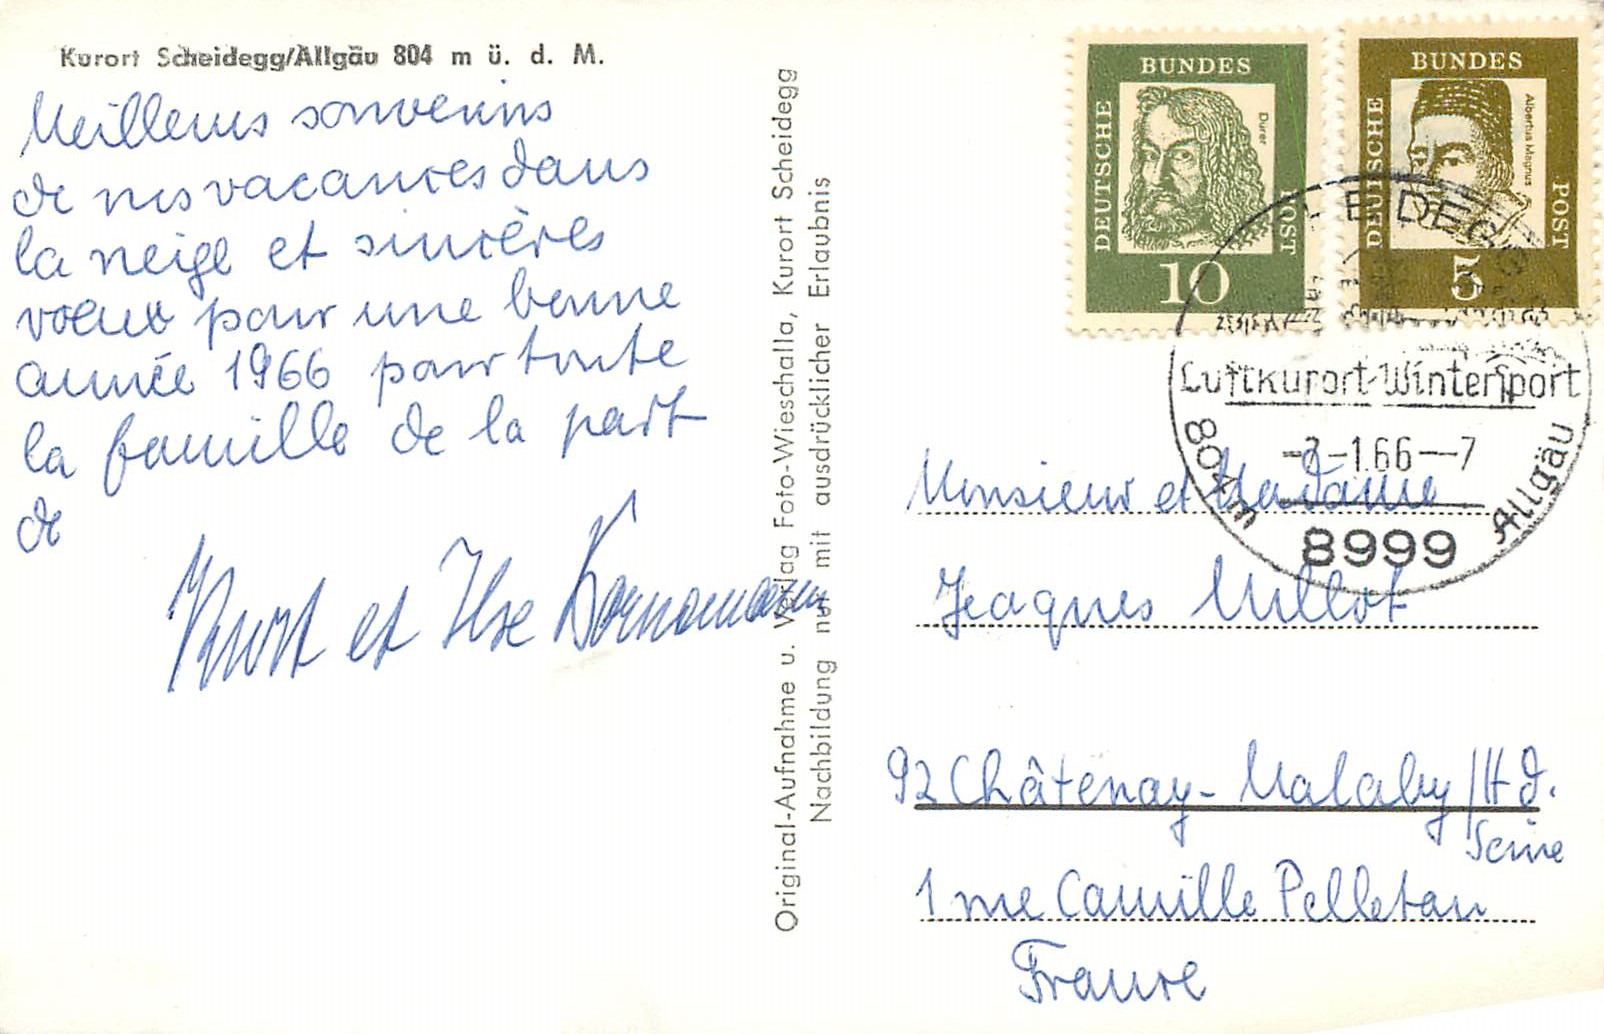 Kurort Scheidegg/Allgäu 804 m ü. d. M.
Meilleurs souvenirs
de nos vacances dans
la neige et sincères
voeux pour une bonne
année 1966 pour toute
la famille de la part
de
Kurt et Ilse Bornemann
Original-Aufnahme u. Verlag Foto-Wieschalla, Kurort Scheidegg
Nachbildung nur mit ausdrücklicher Erlaubnis
DEUTSCHE BUNDES POST
Dürer
10
DEUTSCHE BUNDES POST
Albertus Magnus
5
Luftkurort-Wintersport
-1.66--7
804m Allgäu
8999
Monsieur et Madame
Jeaques Millot
92 Châtenay-Malaby/Ht d.
Seine
1 rue Camille Pelletan
France